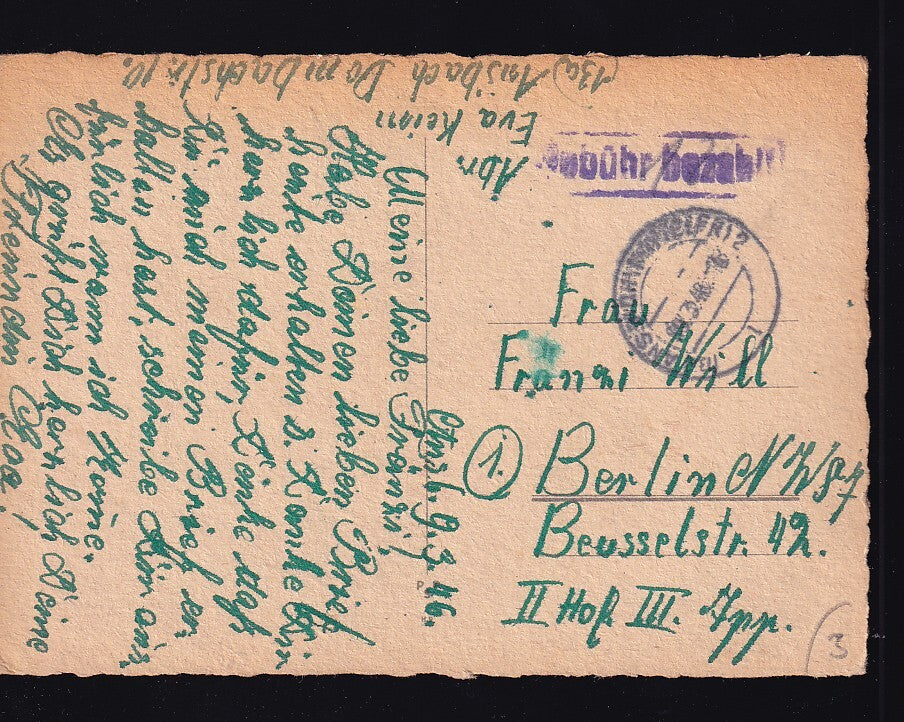 (13a) Ansbach Dombachstr. 10.
Abs. Eva Keim
Gebühr bezahlt
9.3.46.
Meine liebe Fränzi!
Habe Deinen lieben Brief
heute erhalten u. danke Dir
herzlich dafür, Denke daß
Du auch meinen Brief er-
halten hast, schreibe Dir aus-
führlich wann ich komme.
Es grüßt Dich herzlich Deine
Freundin Eva!
Frau
Franzi Will
(1.) Berlin NW 87
Beusselstr. 42.
II Hof III. Tpp.
3